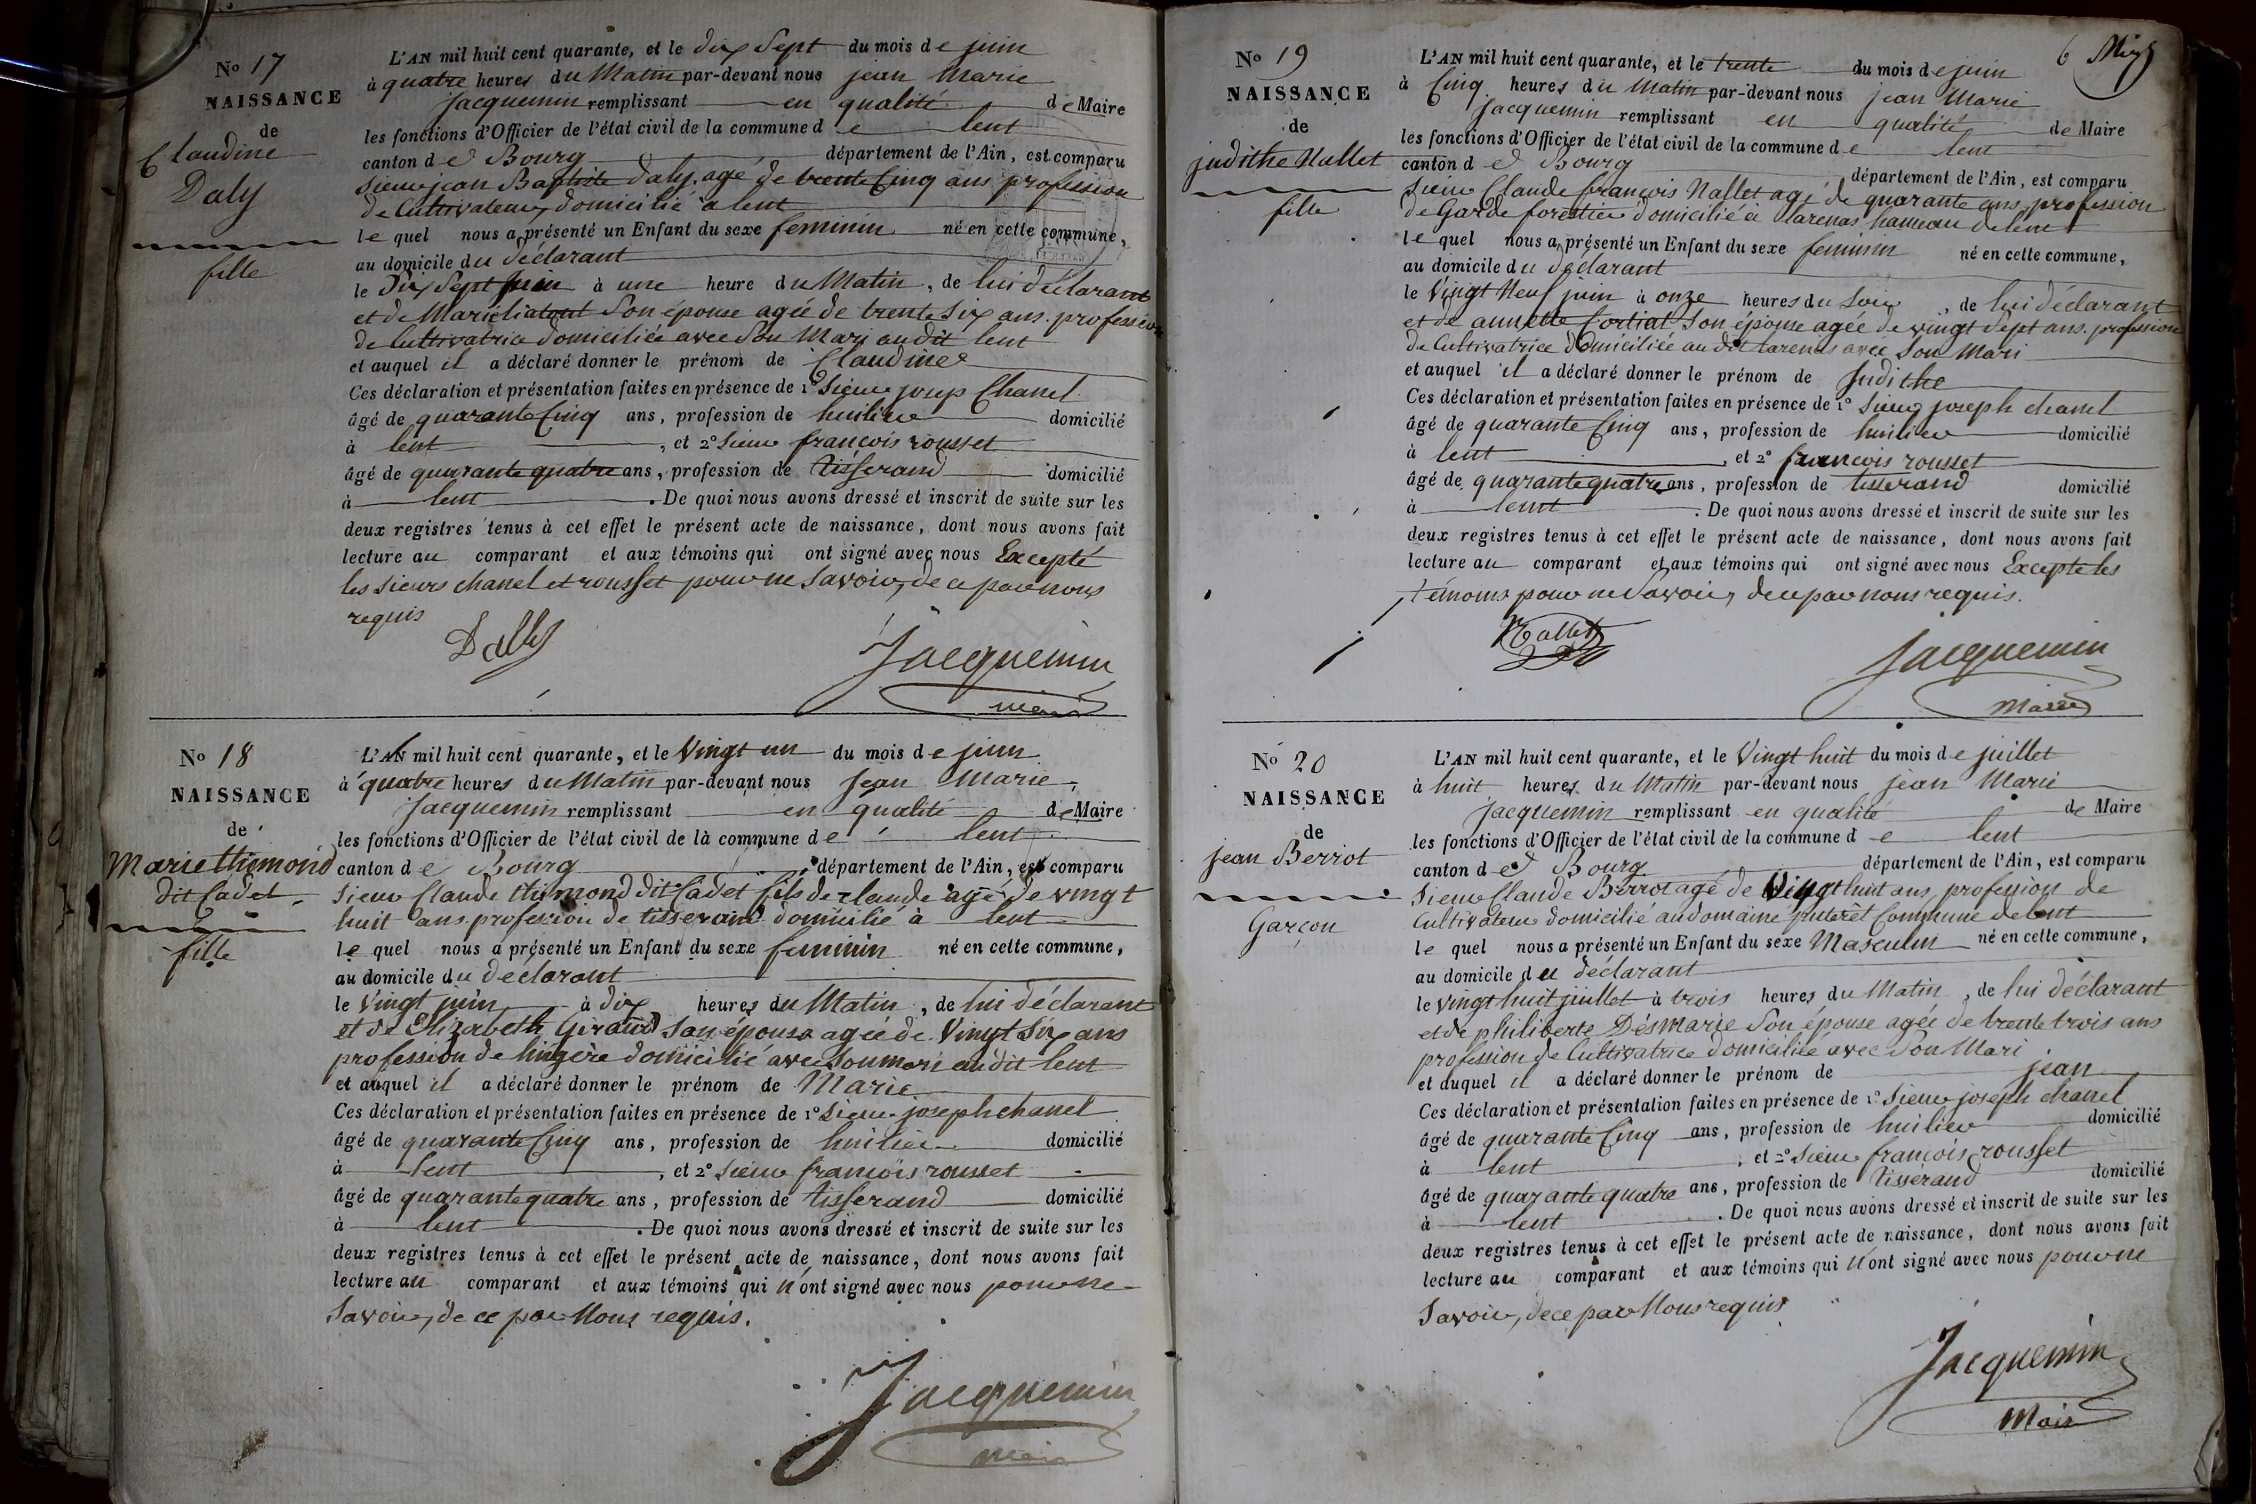 No 17
NAISSANCE
de
Claudine
Daly
fille
L'AN mil huit cent quarante, et le dix Sept du mois de juin
à quatre heures du Matin par-devant nous jean Marie
Jacquemin remplissant en qualité de Maire
les fonctions d'Officier de l'état civil de la commune de lent
canton de Bourg département de l'Ain, est comparu
Sieur jean Baptiste Daly, agé de trente Cinq ans profession
de Cultivateur, domicilié a lent
le quel nous a présenté un Enfant du sexe feminin né en cette commune,
au domicile du déclarant
le Dix Sept juin à une heure du Matin, de lui déclarant
et de Marie Son épouse agée de trente Six ans. profession
de Cultivatrice domiciliée avec Son Mari audit lent
et auquel il a déclaré donner le prénom de Claudine
Ces déclaration et présentation faites en présence de 1° Sieur Chanel
âgé de quarante Cinq ans, profession de huilier domicilié
à lent, et 2° Sieur françois rousset
âgé de quarante quatre ans, profession de tisserand domicilié
à lent. De quoi nous avons dressé et inscrit de suite sur les
deux registres tenus à cet effet le présent acte de naissance, dont nous avons fait
lecture au comparant et aux témoins qui ont signé avec nous Excepté
les Sieurs chanel et rousset pour ne Savoir, de ce par nous
requis
Jacquemin
maire
No 18
NAISSANCE
de
Marie thimond
dit Cadet
fille
L'AN mil huit cent quarante, et le Vingt un du mois de juin
à quatre heures du Matin par-devant nous Jean Marie
Jacquemin remplissant en qualité de Maire
les fonctions d'Officier de l'état civil de la commune de lent
canton de Bourg département de l'Ain, est comparu
Sieur Claude thimond dit Cadet fils de claude agé de vingt
huit ans profession de tisserand domicilié à lent
le quel nous a présenté un Enfant du sexe feminin né en cette commune,
au domicile du declarant
le Vingt juin à dix heures du Matin, de lui déclarant
et de Elizabeth Giraud Son épouse agée de Vingt Six ans
profession de lingère domicilié avec Son mari audit lent
et auquel il a déclaré donner le prénom de Marie
Ces déclaration et présentation faites en présence de 1° Sieur joseph chanel
âgé de quarante Cinq ans, profession de huilier domicilié
à lent, et 2° Sieur françois rousset
âgé de quarante quatre ans, profession de tisserand domicilié
à lent. De quoi nous avons dressé et inscrit de suite sur les
deux registres tenus à cet effet le présent acte de naissance, dont nous avons fait
lecture au comparant et aux témoins qui n'ont signé avec nous pour ne
Savoir, de ce par Nous requis.
Jacquemin
maire
6
No 19
NAISSANCE
de
judithe Nallet
fille
L'AN mil huit cent quarante, et le trente du mois de juin
à Cinq heures du Matin par-devant nous jean Marie
Jacquemin remplissant en qualité de Maire
les fonctions d'Officier de l'état civil de la commune de lent
canton de Bourg département de l'Ain, est comparu
Sieur Claude françois Nallet agé de quarante ans profession
de Garde forestier domicilié a larenas hameau de lent
le quel nous a présenté un Enfant du sexe feminin né en cette commune,
au domicile du déclarant
le Vingt Neuf juin à onze heures du Soir, de lui déclarant
et de annette Cortiat Son épouse agée de vingt Sept ans. profession
de Cultivatrice domiciliée au dit larenas avec Son Mari
et auquel il a déclaré donner le prénom de Judithe
Ces déclaration et présentation faites en présence de 1° Sieur joseph chanel
âgé de quarante Cinq ans, profession de huilier domicilié
à lent, et 2° françois rousset
âgé de quarante quatre ans, profession de tisserand domicilié
à lent. De quoi nous avons dressé et inscrit de suite sur les
deux registres tenus à cet effet le présent acte de naissance, dont nous avons fait
lecture au comparant et aux témoins qui ont signé avec nous Excepté les
témoins pour ne Savoir, de ce par nous requis.
Nallet
Jacquemin
Maire
No 20
NAISSANCE
de
jean Berrot
Garçon
L'AN mil huit cent quarante, et le Vingt huit du mois de juillet
à huit heures du Matin par-devant nous jean Marie
Jacquemin remplissant en qualité de Maire
les fonctions d'Officier de l'état civil de la commune de lent
canton de Bourg département de l'Ain, est comparu
Sieur Claude Berrot agé de Vingt huit ans, profession de
Cultivateur domicilié au domaine Commune de lent
le quel nous a présenté un Enfant du sexe Masculin né en cette commune,
au domicile du déclarant
le vingt huit juillet à trois heures du Matin, de lui déclarant
et de philiberte Désmarie Son épouse agée de trente trois ans
profession de Cultivatrice domiciliée avec Son Mari
et auquel il a déclaré donner le prénom de jean
Ces déclaration et présentation faites en présence de 1° Sieur joseph chanel
âgé de quarante Cinq ans, profession de huilier domicilié
à lent, et 2° Sieur françois rousset
âgé de quarante quatre ans, profession de tisserand domicilié
à lent. De quoi nous avons dressé et inscrit de suite sur les
deux registres tenus à cet effet le présent acte de naissance, dont nous avons fait
lecture au comparant et aux témoins qui n'ont signé avec nous pour ne
Savoir, de ce par Nous requis
Jacquemin
Maire